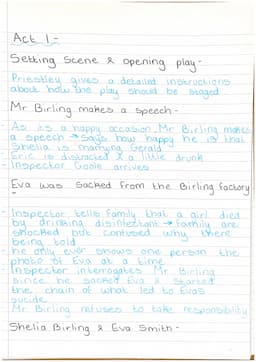 Act 1:-
Setting Scene & opening play -
Priestley gives a detailed instructions
about how the play should be staged
Mr Birling makes a speech -
As its a happy occasion, Mr Birling makes
a speech → says how happy he is that
Shelia is marrying Gerald
- Eric is distracted & a little drunk
- Inspector Goole arrives
Eva was sacked from the Birling factory
-
- Inspector tells family that a girl died
by drinking disinfectant → family are
shocked but confused why there
being told
he only ever shows one person the
photo of Eva at a time
- Inspector interrogates Mr Birling
since he sacked Eva & started
the chain of what led to Evas
suicide
Mr Birling refuses to take responsibility
Shelia Birling & Eva Smith -